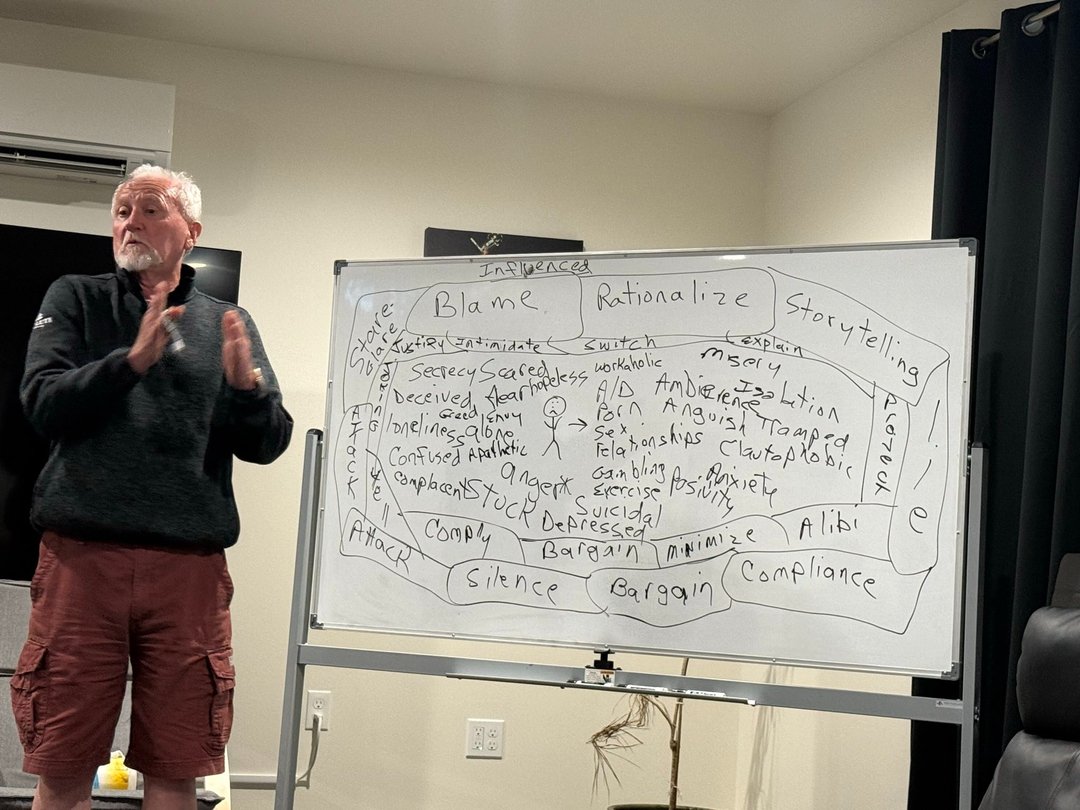 Influenced
Blame
Rationalize
Storytelling
Stare
Justify
Intimidate
Switch
explain
Secrecy Scared
workaholic
misery
Deceived fear hopeless
A/D
Isolation
Greed Envy
Porn
Anguish
Tramped
loneliness alone
Sex
relationships
Clautophobic
Confused Apathetic
Gambling
Anxiety
anger
Exercise
complacent
STUCK
Suicidal
Depressed
Joking
Attack
Attack
Comply
Bargain
minimize
Alibi
Silence
Bargain
Compliance